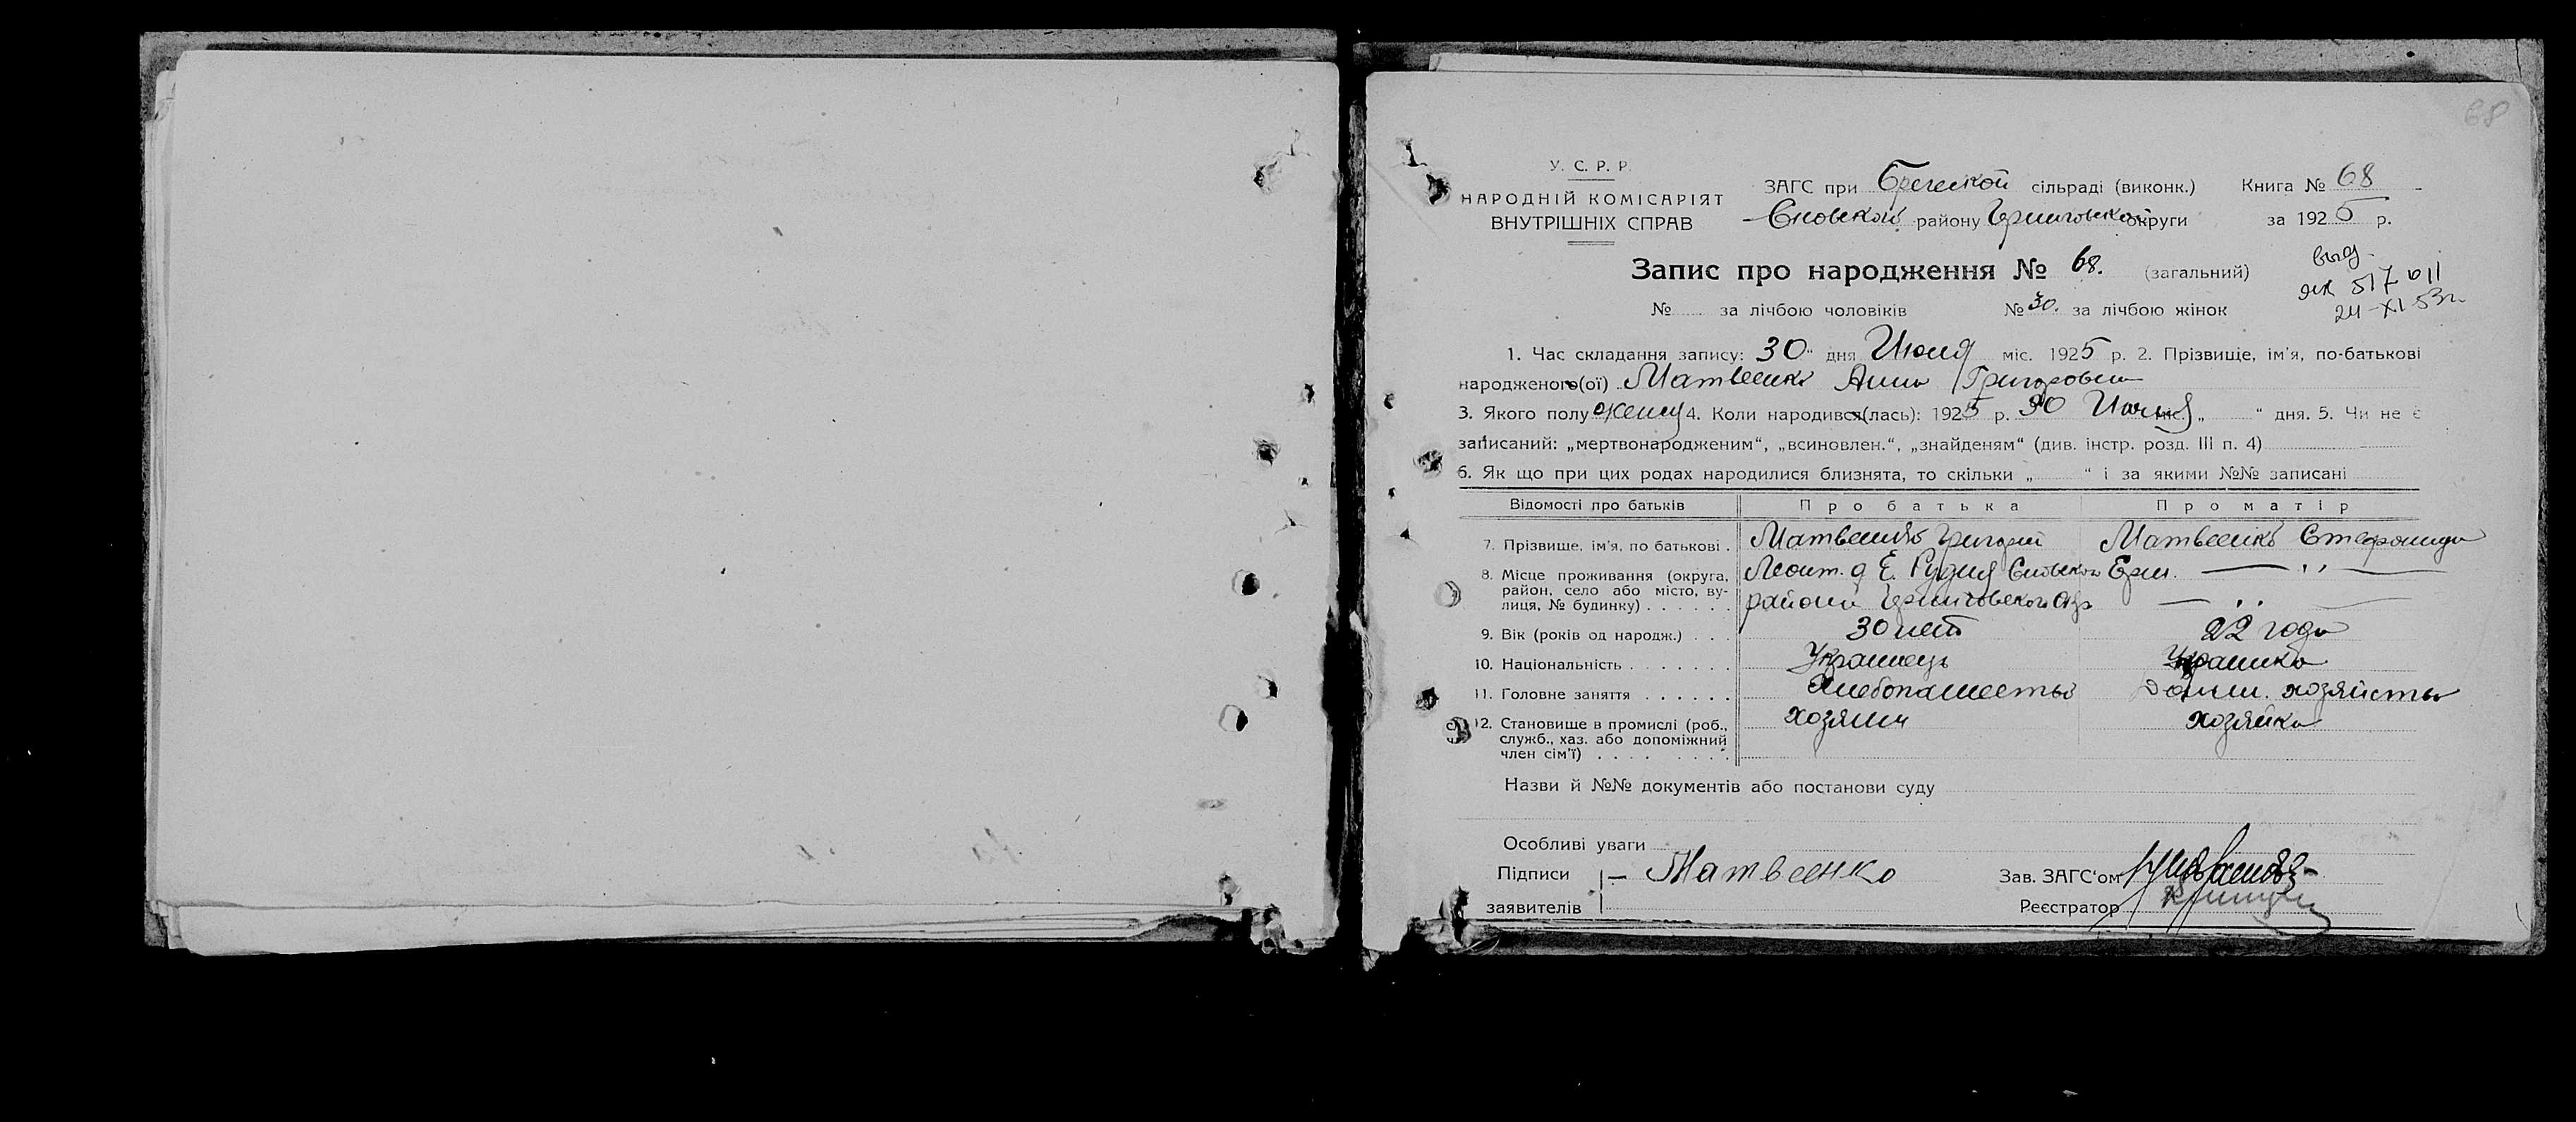 68
У. С. Р. Р.
НАРОДНІЙ КОМІСАРІЯТ
ВНУТРІШНІХ СПРАВ
ЗАГС при сільраді (виконк.) Книга № 68
Сновской району Черниговской округи за 1925 р.
Запис про народження № 68. (загальний)
выд.
517011
24-XI-53г.
№ за лічбою чоловіків № 30. за лічбою жінок
1. Час складання запису: 30 " дня Июля міс. 1925 р. 2. Прізвище, ім'я, по-батькові
народженого(ої) Матвеенко Анна Григоровна
3. Якого полу женщ 4. Коли народився(лась): 1925 р. 30 Июля міс. „ “ дня. 5. Чи не є
записаний: „мертвонародженим“, „всиновлен.“, „знайденям“ (див. інстр. розд. III п. 4)
6. Як що при цих родах народилися близнята, то скільки „ “ і за якими №№ записані
Відомості про батьків Про батька Про матір
7. Прізвище, ім'я, по батькові . Матвеенко Григорий Матвеенко Стефанида
8. Місце проживання (округа, район, село або місто, вулиця, № будинку) . . . . . . Рудня Сновской — ,, —
района Черниговской Окр — ,, —
9. Вік (років од народж.) . . . 30 лет 22 года
10. Національність . . . . . . . Украинець Украинка
11. Головне заняття . . . . . . Хлебопашество Домаш. хозяйство
12. Становище в промислі (роб., служб., хаз. або допоміжний член сім'ї) . . . . . . . . хозяин хозяйка
Назви й №№ документів або постанови суду
Особливі уваги
Підписи — Матвеенко Зав. ЗАГС‘ом
заявителів Реєстратор